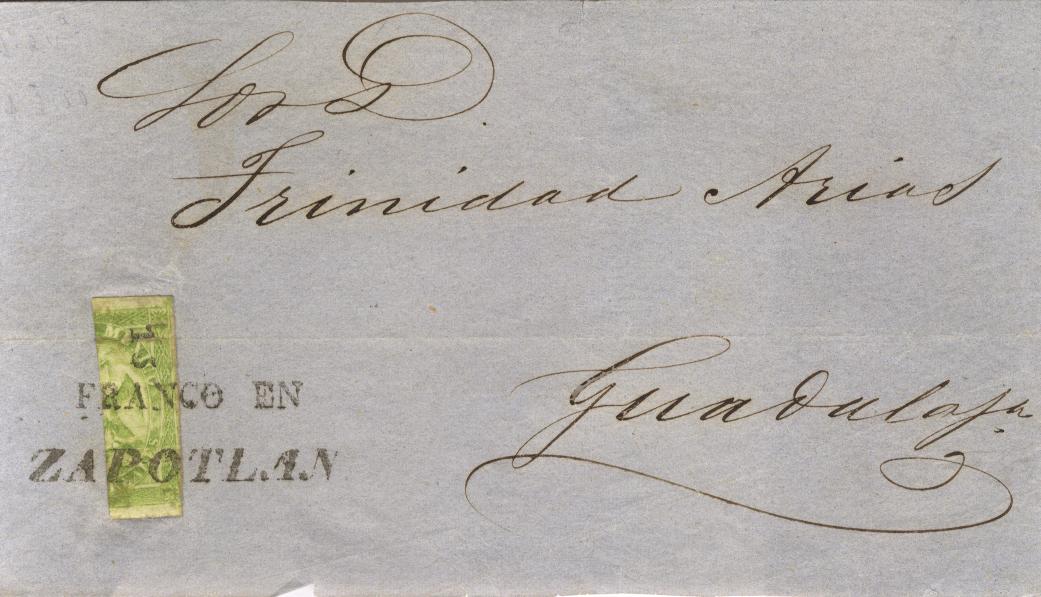 Sor D.
Trinidad Arias
Guadalaja
FRANCO EN
ZAPOTLAN